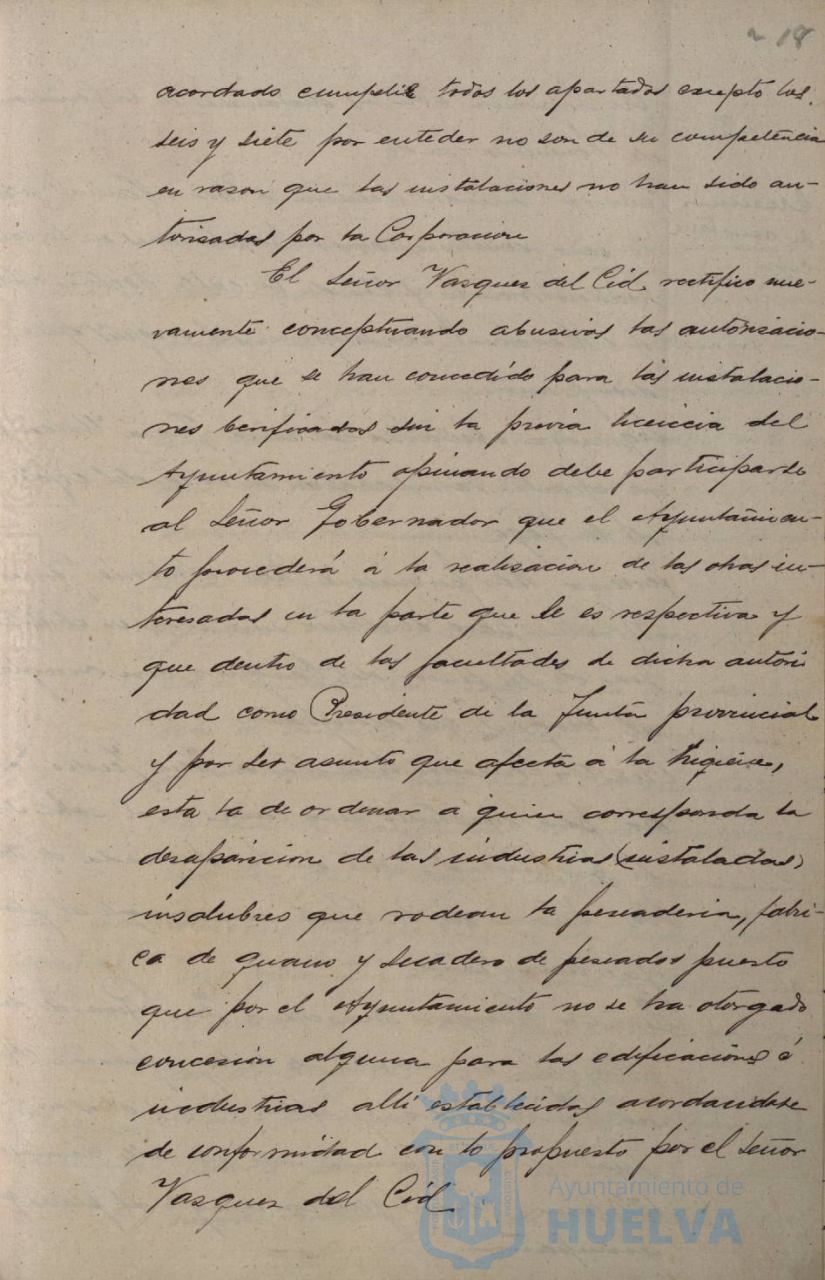 18
acordado cumplir todos los apartados excepto los
seis y siete por enteder no son de su competencia
en rason que las instalaciones no han sido au-
torisadas por la Corporacion
El Señor Vasques del Cid rectifico nue-
vamente conceptuando abusivas las autorisacio-
nes que se han concedido para las instalacio-
nes berificadas sin la previa licencia del
Ayuntamiento opinando debe participarse
al Señor Gobernador que el Ayuntamien-
to procederá á la realisacion de las obras in-
teresadas en la parte que le es respectiva y
que dentro de las facultades de dicha autori
dad como Presidente de la Junta provincial
y por ser asunto que afecta á la higiene,
esta la de ordenar a quien corresponda la
desaparicion de las industrias (instaladas)
insalubres que rodean la pescaderia, fabri-
ca de guano y secadero de pescados puesto
que por el Ayuntamiento no se ha otorgado
concesion alguna para las edificaciones é
industrias alli establecidas acordandose
de conformidad con lo propuesto por el Señor
Vasques del Cid.
Ayuntamiento de
HUELVA